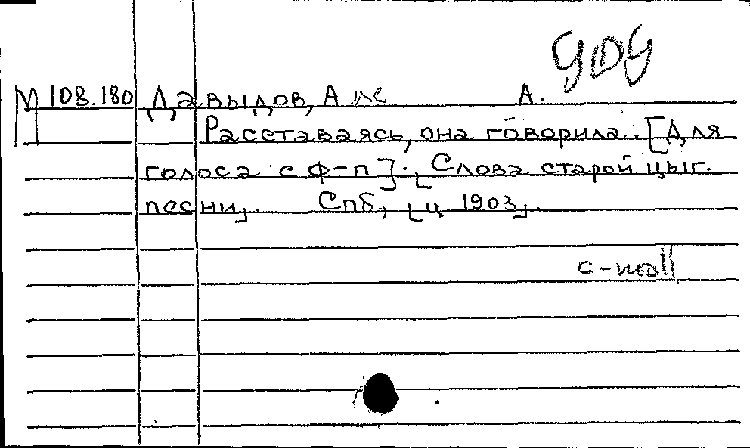 М 108.180 Давыдов, Алс. А.
Расставаясь, она говорила.. [Для
голоса с ф-п]. [Слова старой цыг.
песни]. Спб, [ц. 1903].
c-moll